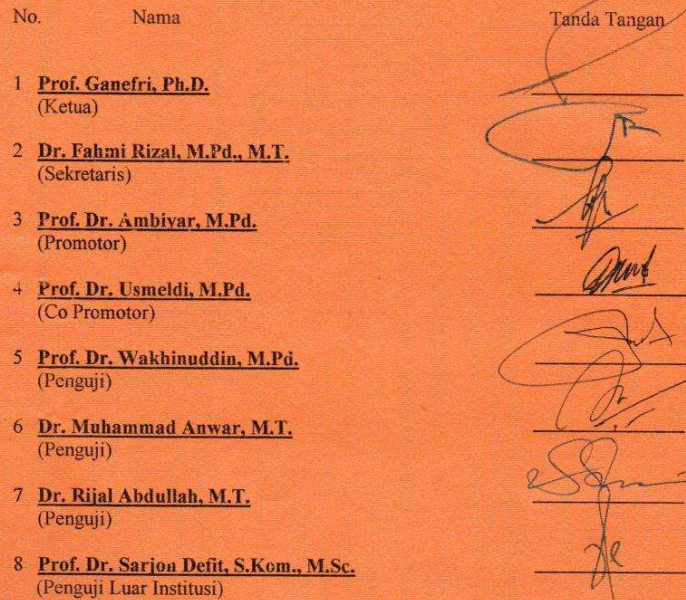 No. Nama Tanda Tangan
1 Prof. Ganefri, Ph.D.
(Ketua)
2 Dr. Fahmi Rizal, M.Pd., M.T.
(Sekretaris)
3 Prof. Dr. Ambiyar, M.Pd.
(Promotor)
4 Prof. Dr. Usmeldi, M.Pd.
(Co Promotor)
5 Prof. Dr. Wakhinuddin, M.Pd.
(Penguji)
6 Dr. Muhammad Anwar, M.T.
(Penguji)
7 Dr. Rijal Abdullah, M.T.
(Penguji)
8 Prof. Dr. Sarjon Defit, S.Kom., M.Sc.
(Penguji Luar Institusi)